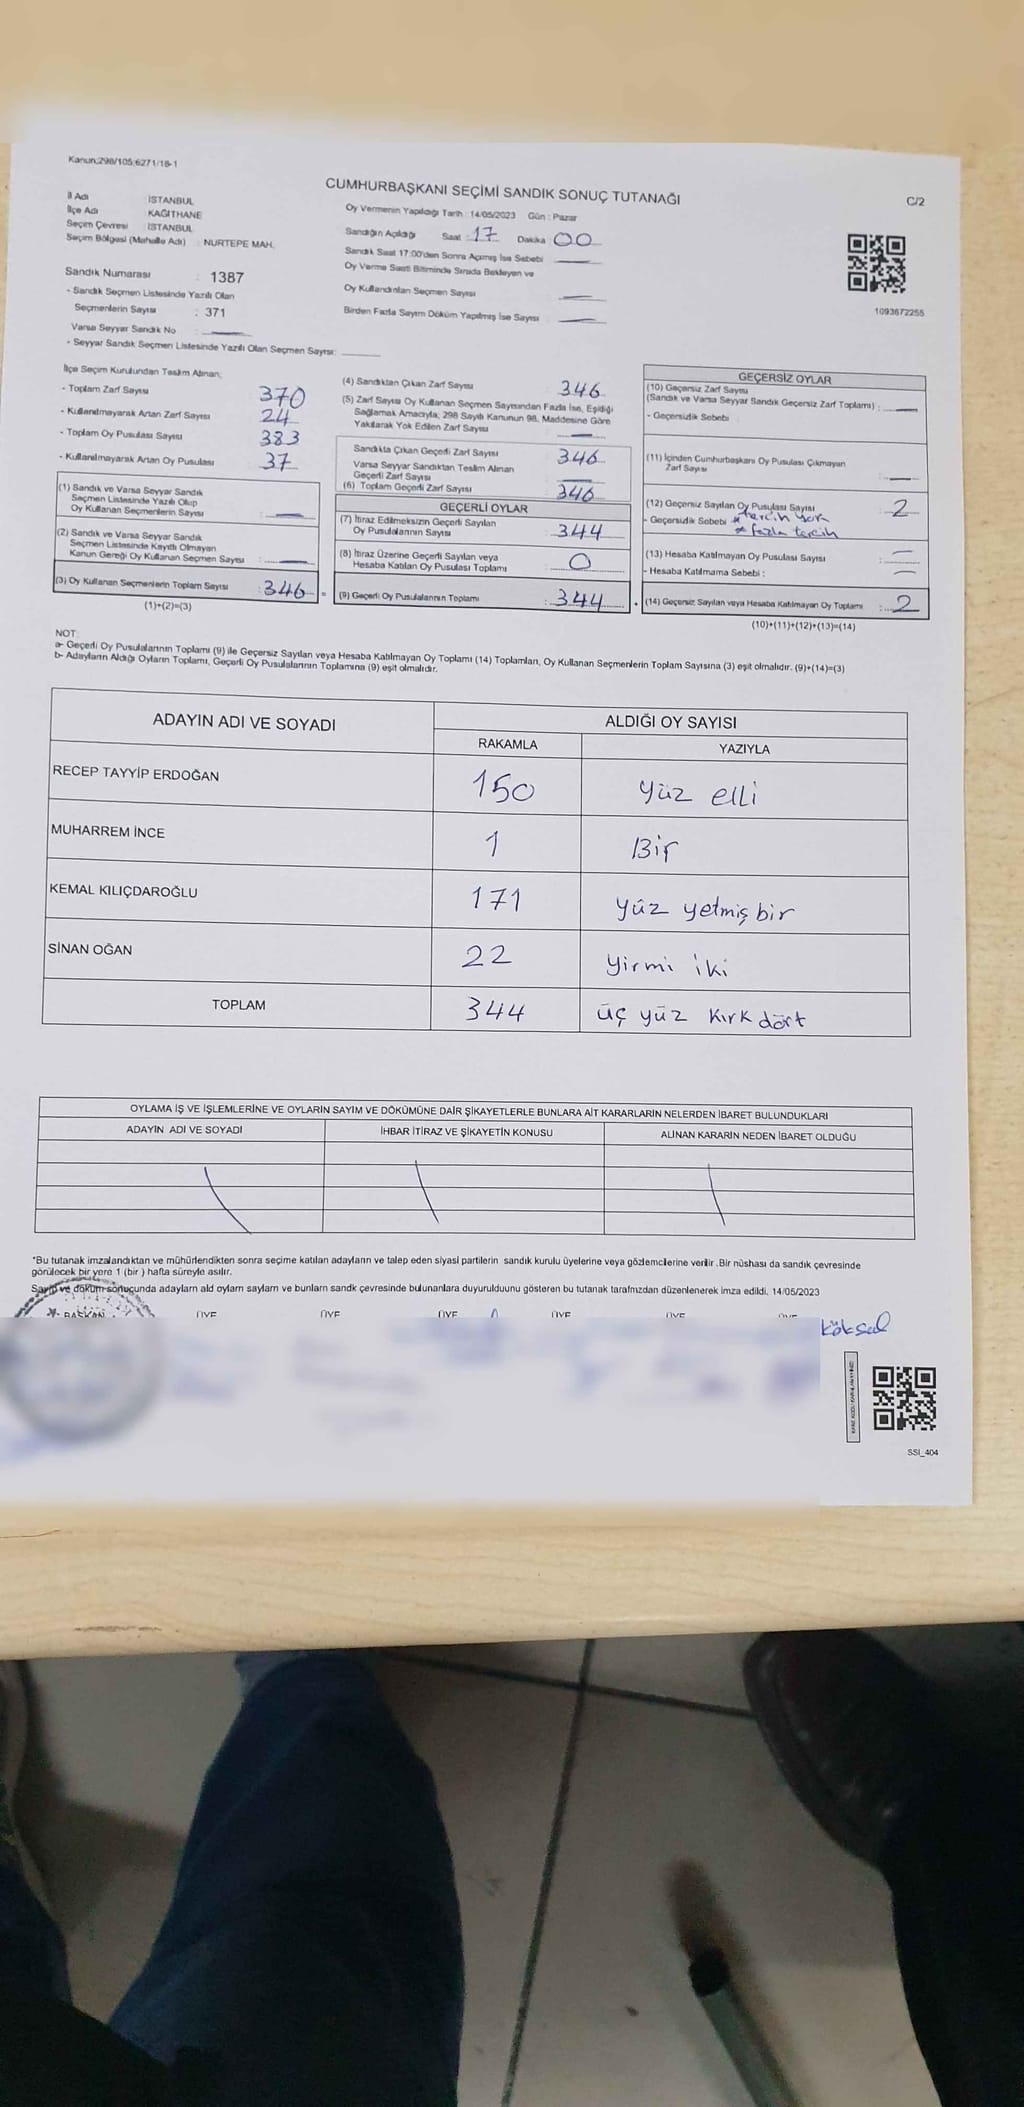 Kanun;298/105;6271/18-1
CUMHURBAŞKANI SEÇİMİ SANDIK SONUÇ TUTANAĞI
C/2
İl Adı İSTANBUL
İlçe Adı KAĞITHANE
Seçim Çevresi İSTANBUL
Seçim Bölgesi (Mahalle Adı) : NURTEPE MAH.
Sandık Numarası : 1387
- Sandık Seçmen Listesinde Yazılı Olan
Seçmenlerin Sayısı : 371
Varsa Seyyar Sandık No :
- Seyyar Sandık Seçmen Listesinde Yazılı Olan Seçmen Sayısı:
Oy Vermenin Yapıldığı Tarih : 14/05/2023 Gün : Pazar
Sandığın Açıldığı Saat : 17 Dakika : 00
Sandık Saat 17:00'den Sonra Açılmış İse Sebebi
Oy Verme Saati Bitiminde Sırada Bekleyen ve
Oy Kullandırılan Seçmen Sayısı
Birden Fazla Sayım Döküm Yapılmış İse Sayısı :
1093672255
İlçe Seçim Kurulundan Teslim Alınan;
- Toplam Zarf Sayısı 370
- Kullanılmayarak Artan Zarf Sayısı 24
- Toplam Oy Pusulası Sayısı 383
- Kullanılmayarak Artan Oy Pusulası 37
(1) Sandık ve Varsa Seyyar Sandık
Seçmen Listesinde Yazılı Olup
Oy Kullanan Seçmenlerin Sayısı :
(2) Sandık ve Varsa Seyyar Sandık
Seçmen Listesinde Kayıtlı Olmayan
Kanun Gereği Oy Kullanan Seçmen Sayısı :
(3) Oy Kullanan Seçmenlerin Toplam Sayısı : 346 =
(1)+(2)=(3)
(4) Sandıktan Çıkan Zarf Sayısı 346
(5) Zarf Sayısı Oy Kullanan Seçmen Sayısından Fazla İse, Eşitliği
Sağlamak Amacıyla, 298 Sayılı Kanunun 98. Maddesine Göre
Yakılarak Yok Edilen Zarf Sayısı
Sandıkta Çıkan Geçerli Zarf Sayısı 346
Varsa Seyyar Sandıktan Teslim Alınan
Geçerli Zarf Sayısı
(6) Toplam Geçerli Zarf Sayısı 346
GEÇERLİ OYLAR
(7) İtiraz Edilmeksizin Geçerli Sayılan
Oy Pusulalarının Sayısı : 344
(8) İtiraz Üzerine Geçerli Sayılan veya
Hesaba Katılan Oy Pusulası Toplamı : 0
(9) Geçerli Oy Pusulalarının Toplamı : 344 +
GEÇERSİZ OYLAR
(10) Geçersiz Zarf Sayısı
(Sandık ve Varsa Seyyar Sandık Geçersiz Zarf Toplamı) :
- Geçersizlik Sebebi :
(11) İçinden Cumhurbaşkanı Oy Pusulası Çıkmayan
Zarf Sayısı
(12) Geçersiz Sayılan Oy Pusulası Sayısı : 2
- Geçersizlik Sebebi * tercih yok
* fazla tercih
(13) Hesaba Katılmayan Oy Pusulası Sayısı :
- Hesaba Katılmama Sebebi :
(14) Geçersiz Sayılan veya Hesaba Katılmayan Oy Toplamı : 2
(10)+(11)+(12)+(13)=(14)
NOT:
a- Geçerli Oy Pusulalarının Toplamı (9) ile Geçersiz Sayılan veya Hesaba Katılmayan Oy Toplamı (14) Toplamları, Oy Kullanan Seçmenlerin Toplam Sayısına (3) eşit olmalıdır. (9)+(14)=(3)
b- Adayların Aldığı Oyların Toplamı, Geçerli Oy Pusulalarının Toplamına (9) eşit olmalıdır.
ADAYIN ADI VE SOYADI ALDIĞI OY SAYISI
RAKAMLA YAZIYLA
RECEP TAYYİP ERDOĞAN 150 yüz elli
MUHARREM İNCE 1 Bir
KEMAL KILIÇDAROĞLU 171 yüz yetmiş bir
SİNAN OĞAN 22 yirmi iki
TOPLAM 344 üç yüz kırk dört
OYLAMA İŞ VE İŞLEMLERİNE VE OYLARIN SAYIM VE DÖKÜMÜNE DAİR ŞİKAYETLERLE BUNLARA AİT KARARLARIN NELERDEN İBARET BULUNDUKLARI
ADAYIN ADI VE SOYADI İHBAR İTİRAZ VE ŞİKAYETİN KONUSU ALINAN KARARIN NEDEN İBARET OLDUĞU
*Bu tutanak imzalandıktan ve mühürlendikten sonra seçime katılan adayların ve talep eden siyasi partilerin sandık kurulu üyelerine veya gözlemcilerine verilir. Bir nüshası da sandık çevresinde
görülecek bir yere 1 (bir ) hafta süreyle asılır.
Sayım ve döküm sonucunda adayların ald oyların sayların ve bunların sandk çevresinde bulunanlara duyurulduunu gösteren bu tutanak tarafmzdan düzenlenerek imza edildi. 14/05/2023
BAŞKAN ÜYE ÜYE ÜYE ÜYE ÜYE
Köksal
SSI_404